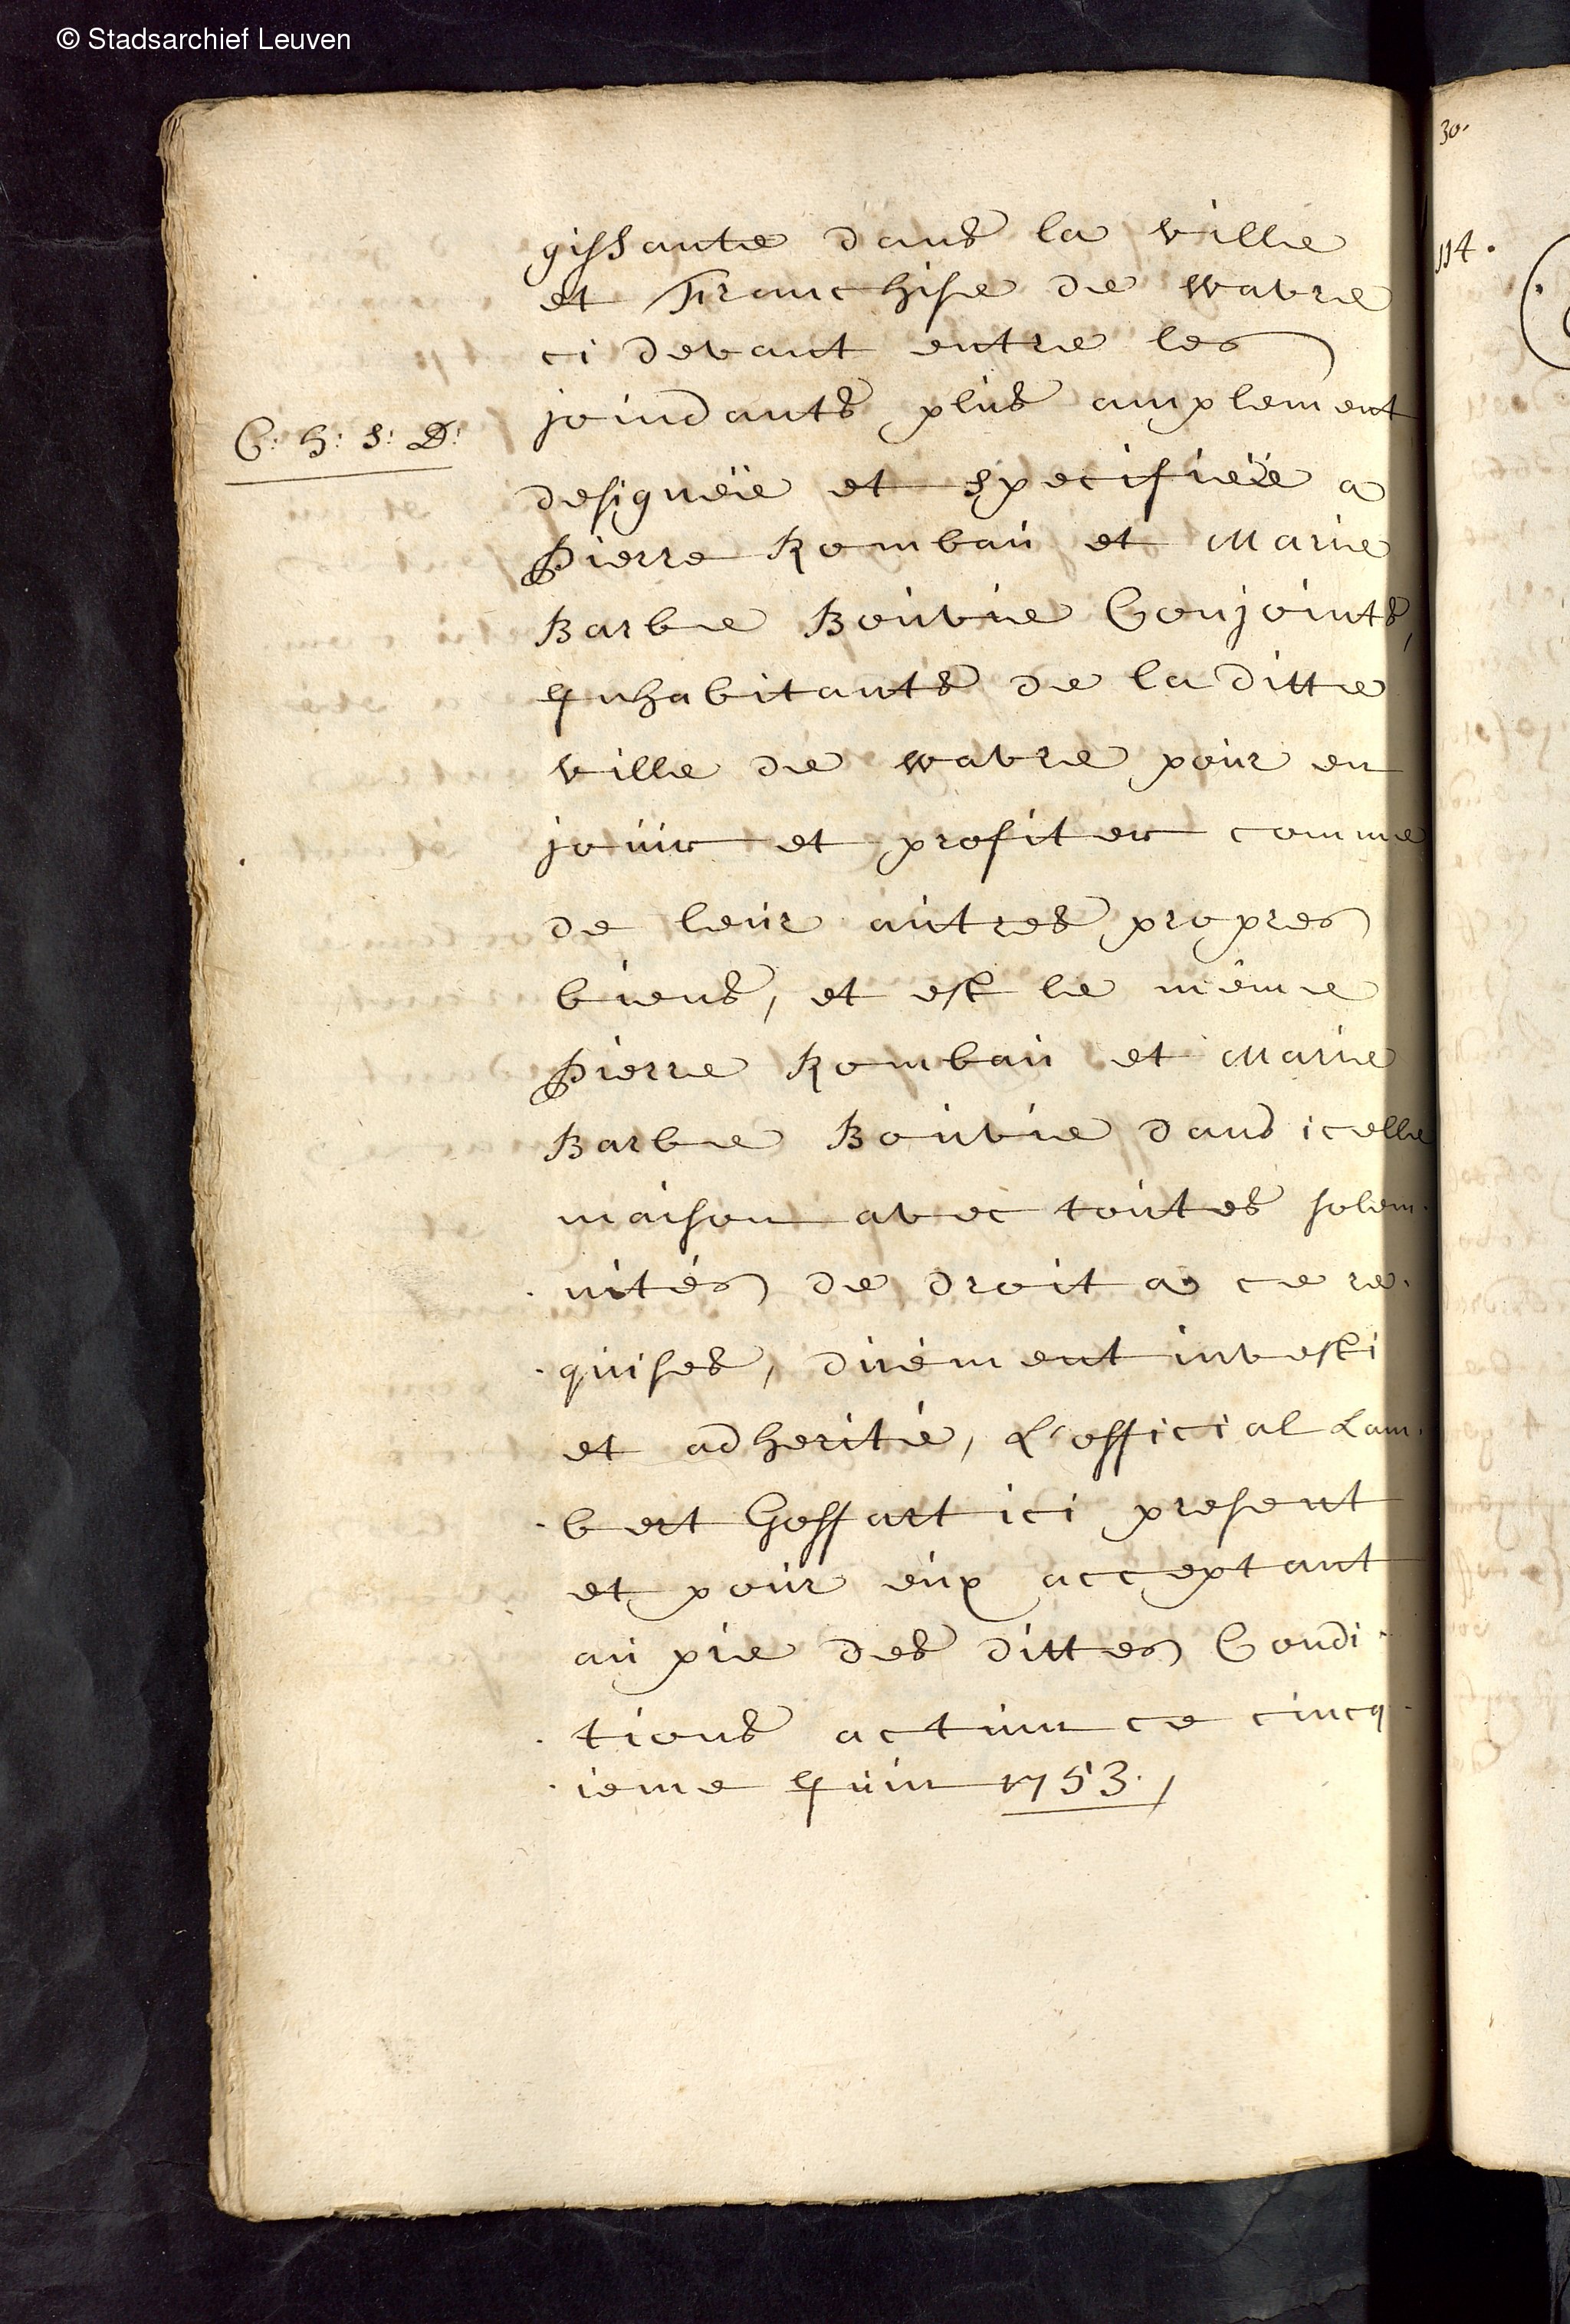 © Stadsarchief Leuven
gissante dans la ville
et Franchise de wavre
ci devant entre les
joindants plus amplement
C: H: S: D:
designéé et specifiéé a
Pierre Rombau et Marie
Barbe Bouvie Conjoints,
Inhabitants de la ditte
ville de wavre pour en
jouir et profiter comme
de leur autres propres
biens, et est le même
Pierre Rombau et Marie
Barbe Bouvie dans icelle
maison avec toutes solem-
nités de droit a ce re-
quises, duëment investi
et adherité, L'official Lam-
bert Goffart ici present
et pour eux acceptant
au pie des dittes Condi-
tions actum ce cincq-
ieme Juin 1753.
30.
114.